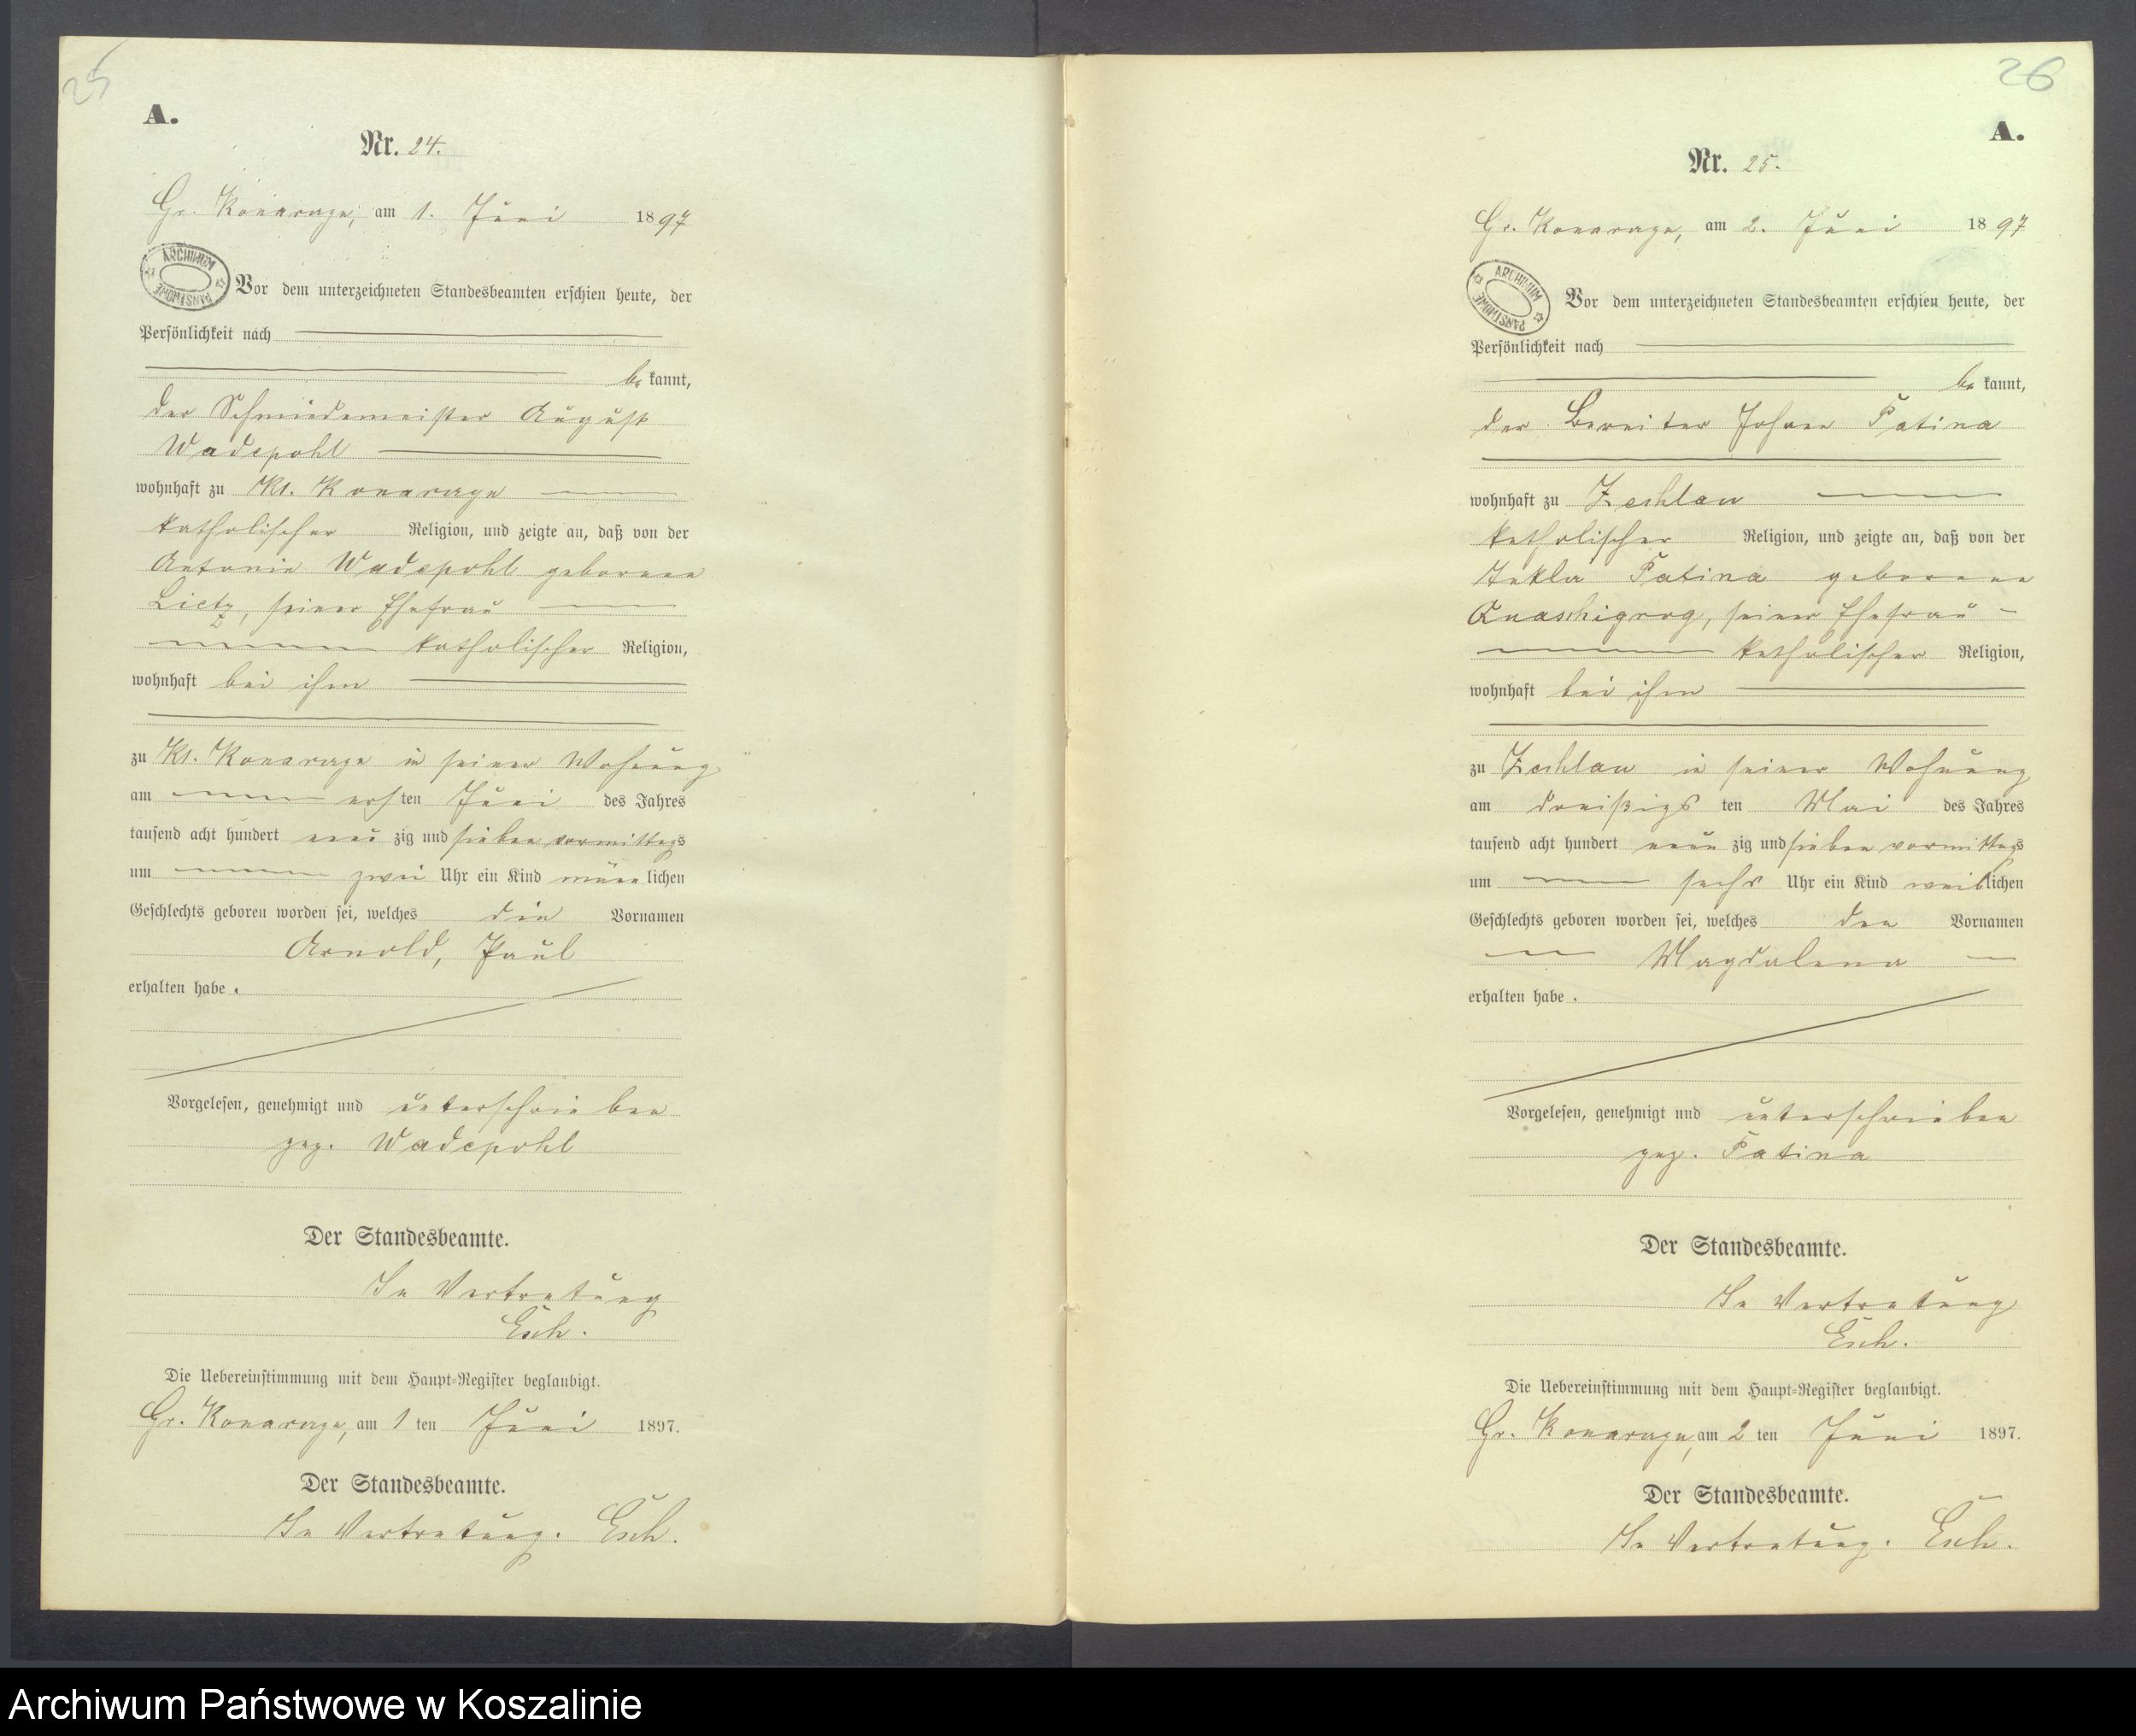 25
A.
Nr. 24.
Gr. Konarczyn, am 1. Juni 1897
ARCHIWUM PAŃSTWOWE
Vor dem unterzeichneten Standesbeamten erschien heute, der
Persönlichkeit nach
be kannt,
der Schmiedemeister August
Wadepohl
wohnhaft zu Kl. Konarczyn
katholischer Religion, und zeigte an, daß von der
Antonie Wadepohl geborenen
Lietz, seiner Ehefrau
katholischer Religion,
wohnhaft bei ihm
zu Kl. Konarczyn in seiner Wohnung
am ersten Juni des Jahres
tausend acht hundert neun zig und sieben vormittags
um zwei Uhr ein Kind männlichen
Geschlechts geboren worden sei, welches die Vornamen
Arnold, Paul
erhalten habe.
Vorgelesen, genehmigt und unterschrieben
gez. Wadepohl
Der Standesbeamte.
In Vertretung
Esch.
Die Uebereinstimmung mit dem Haupt-Register beglaubigt.
Gr. Konarczyn, am 1 ten Juni 1897.
Der Standesbeamte.
In Vertretung. Esch.
26
A.
Nr. 25.
Gr. Konarczyn, am 2. Juni 1897
ARCHIWUM PAŃSTWOWE
Vor dem unterzeichneten Standesbeamten erschien heute, der
Persönlichkeit nach
be kannt,
der Bereiter Johann Patina
wohnhaft zu Zechlau
katholischer Religion, und zeigte an, daß von der
Thekla Patina geborenen
seiner Ehefrau
katholischer Religion,
wohnhaft bei ihm
zu Zechlau in seiner Wohnung
am dreißigs ten Mai des Jahres
tausend acht hundert neun zig und sieben vormittags
um sechs Uhr ein Kind weiblichen
Geschlechts geboren worden sei, welches den Vornamen
Magdalena
erhalten habe.
Vorgelesen, genehmigt und unterschrieben
gez. Patina
Der Standesbeamte.
In Vertretung
Esch.
Die Uebereinstimmung mit dem Haupt-Register beglaubigt.
Gr. Konarczyn, am 2 ten Juni 1897.
Der Standesbeamte.
In Vertretung. Esch.
Archiwum Państwowe w Koszalinie